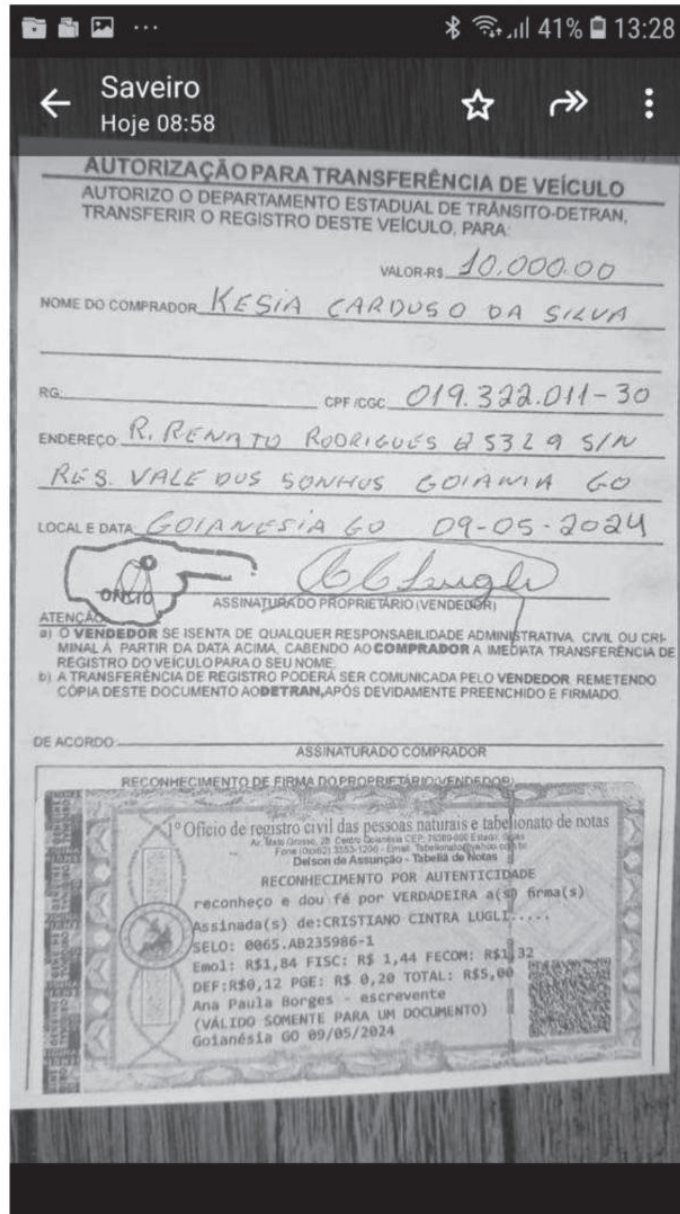 41% 13:28
Saveiro
Hoje 08:58
AUTORIZAÇÃO PARA TRANSFERÊNCIA DE VEÍCULO
AUTORIZO O DEPARTAMENTO ESTADUAL DE TRÂNSITO-DETRAN,
TRANSFERIR O REGISTRO DESTE VEÍCULO, PARA:
VALOR-R$ 10.000.00
NOME DO COMPRADOR KESIA CARDUSO DA SILVA
RG: CPF/CGC 019.322.011-30
ENDEREÇO R. RENATO RODRIGUES S/N
RES. VALE DUS SONHUS GOIANIA GO
LOCAL E DATA: GOIANESIA GO 09-05-2024
OFICIO
ASSINATURA DO PROPRIETÁRIO (VENDEDOR)
ATENÇÃO
a) O VENDEDOR SE ISENTA DE QUALQUER RESPONSABILIDADE ADMINISTRATIVA, CIVIL OU CRI-
MINAL À PARTIR DA DATA ACIMA, CABENDO AO COMPRADOR A IMEDIATA TRANSFERÊNCIA DE
REGISTRO DO VEÍCULO PARA O SEU NOME.
b) A TRANSFERÊNCIA DE REGISTRO PODERÁ SER COMUNICADA PELO VENDEDOR, REMETENDO
CÓPIA DESTE DOCUMENTO AO DETRAN, APÓS DEVIDAMENTE PREENCHIDO E FIRMADO.
DE ACORDO:
ASSINATURA DO COMPRADOR
RECONHECIMENTO DE FIRMA DO PROPRIETÁRIO (VENDEDOR)
1º Ofício de registro civil das pessoas naturais e tabelionato de notas
Delson de Assunção - Tabeliã de Notas
RECONHECIMENTO POR AUTENTICIDADE
reconheço e dou fé por VERDADEIRA a(s) firma(s)
Assinada(s) de:CRISTIANO CINTRA LUGLI.....
SELO: 0065.AB235986-1
Emol: R$1,84 FISC: R$ 1,44 FECOM: R$1,32
DEF:R$0,12 PGE: R$ 0,20 TOTAL: R$5,00
Ana Paula Borges - escrevente
(VÁLIDO SOMENTE PARA UM DOCUMENTO)
Goianésia GO 09/05/2024